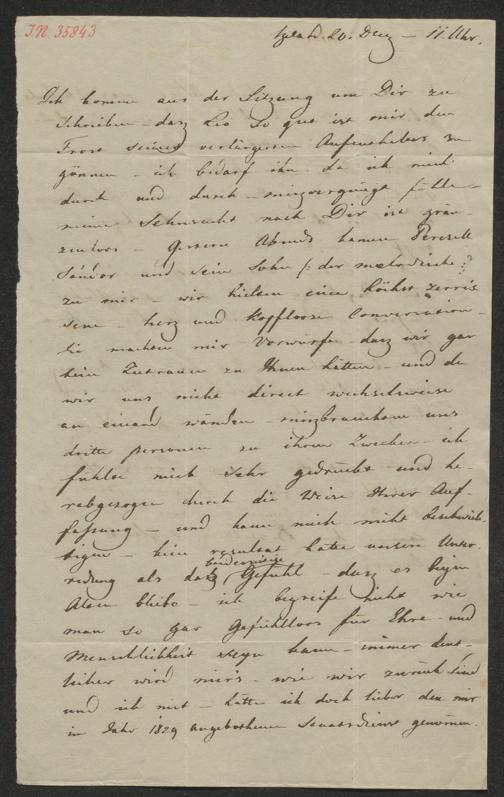 I.N. 35843
20. Dez – 11. Uhr.
Ich komme aus der Sitzung um Dir zu
schreiben – dasz Sie so gut ist mir den
Trost seines verlängerten Aufenthaltes zu
gönnen – ich bedarf ihn da ich mich
durch und durch – miszvergnügt fühle –
meine Sehnsucht nach Dir ist grän-
zenloos – Gestern Abends kamen Perczell
Sándor und sein Sohn /: der melodische :/
zu mir – wir hielten eine höchst zerris
sene – herz und kopfloose Conversation –
Sie machten mir Vorwürfe dasz wir gar
kein Zutrauen zu Ihnen hätten – und da
wir uns nicht direct wechselweise
an einand wänden – miszbrauchen uns
dritte personen zu ihren Zwecken – ich
fühle mich sehr gedrückt und he-
rabgezogen durch die Weise Ihrer Auf-
fassung – und kann mich nicht beschwich-
tigen – kein resultaat hatte unsere Unter-
redung als dasz beiderseitige Gefühl – dasz es beym
Alten bliebe – ich begreife nicht wie
man so gar Gefühlloos für Ehre – und
Menschlichkeit seyn kann – immer deut-
licher wird mir's – wie wir zurück sind
und ich mit – hätte ich doch lieber den mir
in Jahr 1829 angebothenen Staatsdienst genommen.